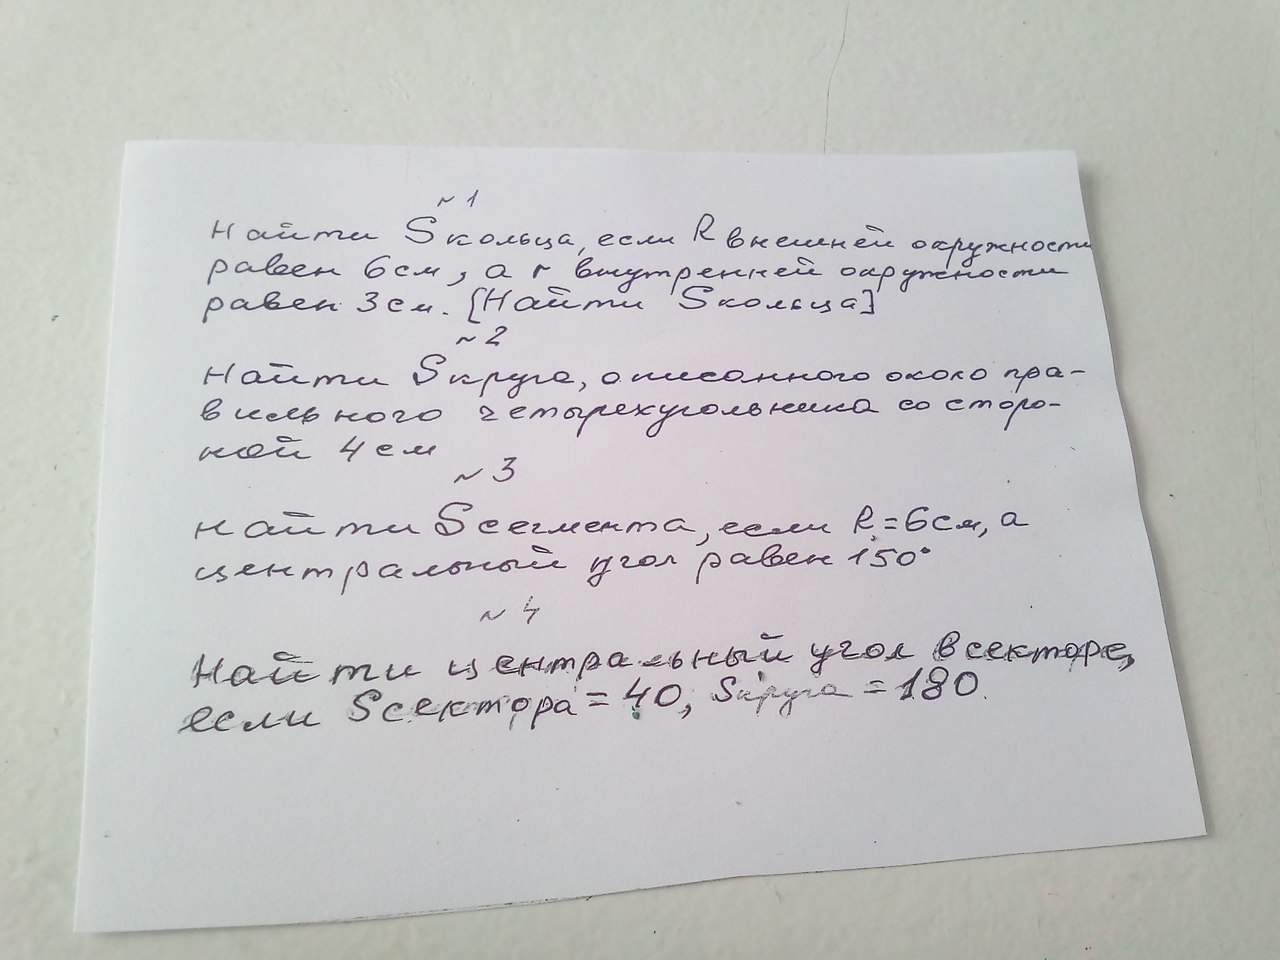 ~ 1
Найти S кольца, если R внешней окружности
равен 6 см, а r внутренней окружности
равен 3 см. [Найти S кольца]
~ 2
Найти S круга, описанного около пра-
вильного четырехугольника со сторо-
ной 4 см
~ 3
Найти S сегмента, если R = 6 см, а
центральный угол равен 150°
~ 4
Найти центральный угол в секторе,
если S сектора = 40, S круга = 180.